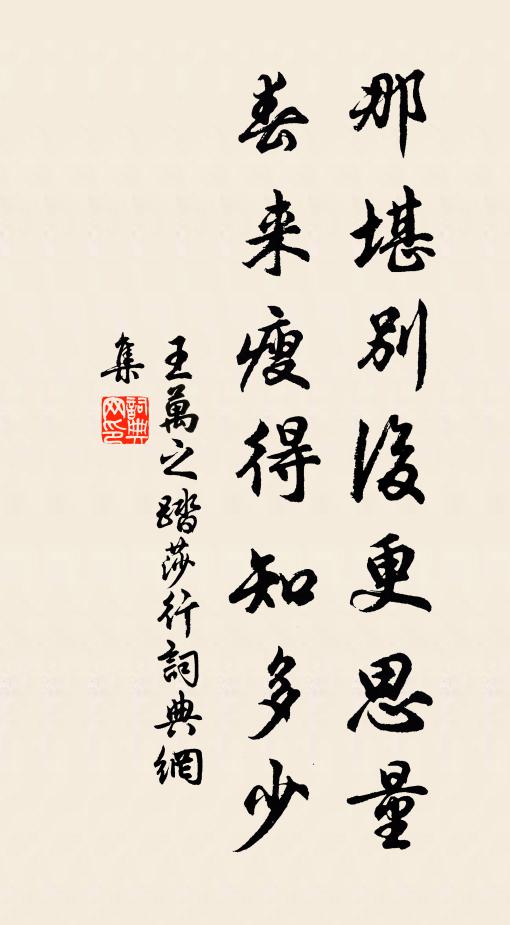 那堪別後更思量
春来瘦得知多少
王萬之踏莎行詞典網
集
詞典
网印